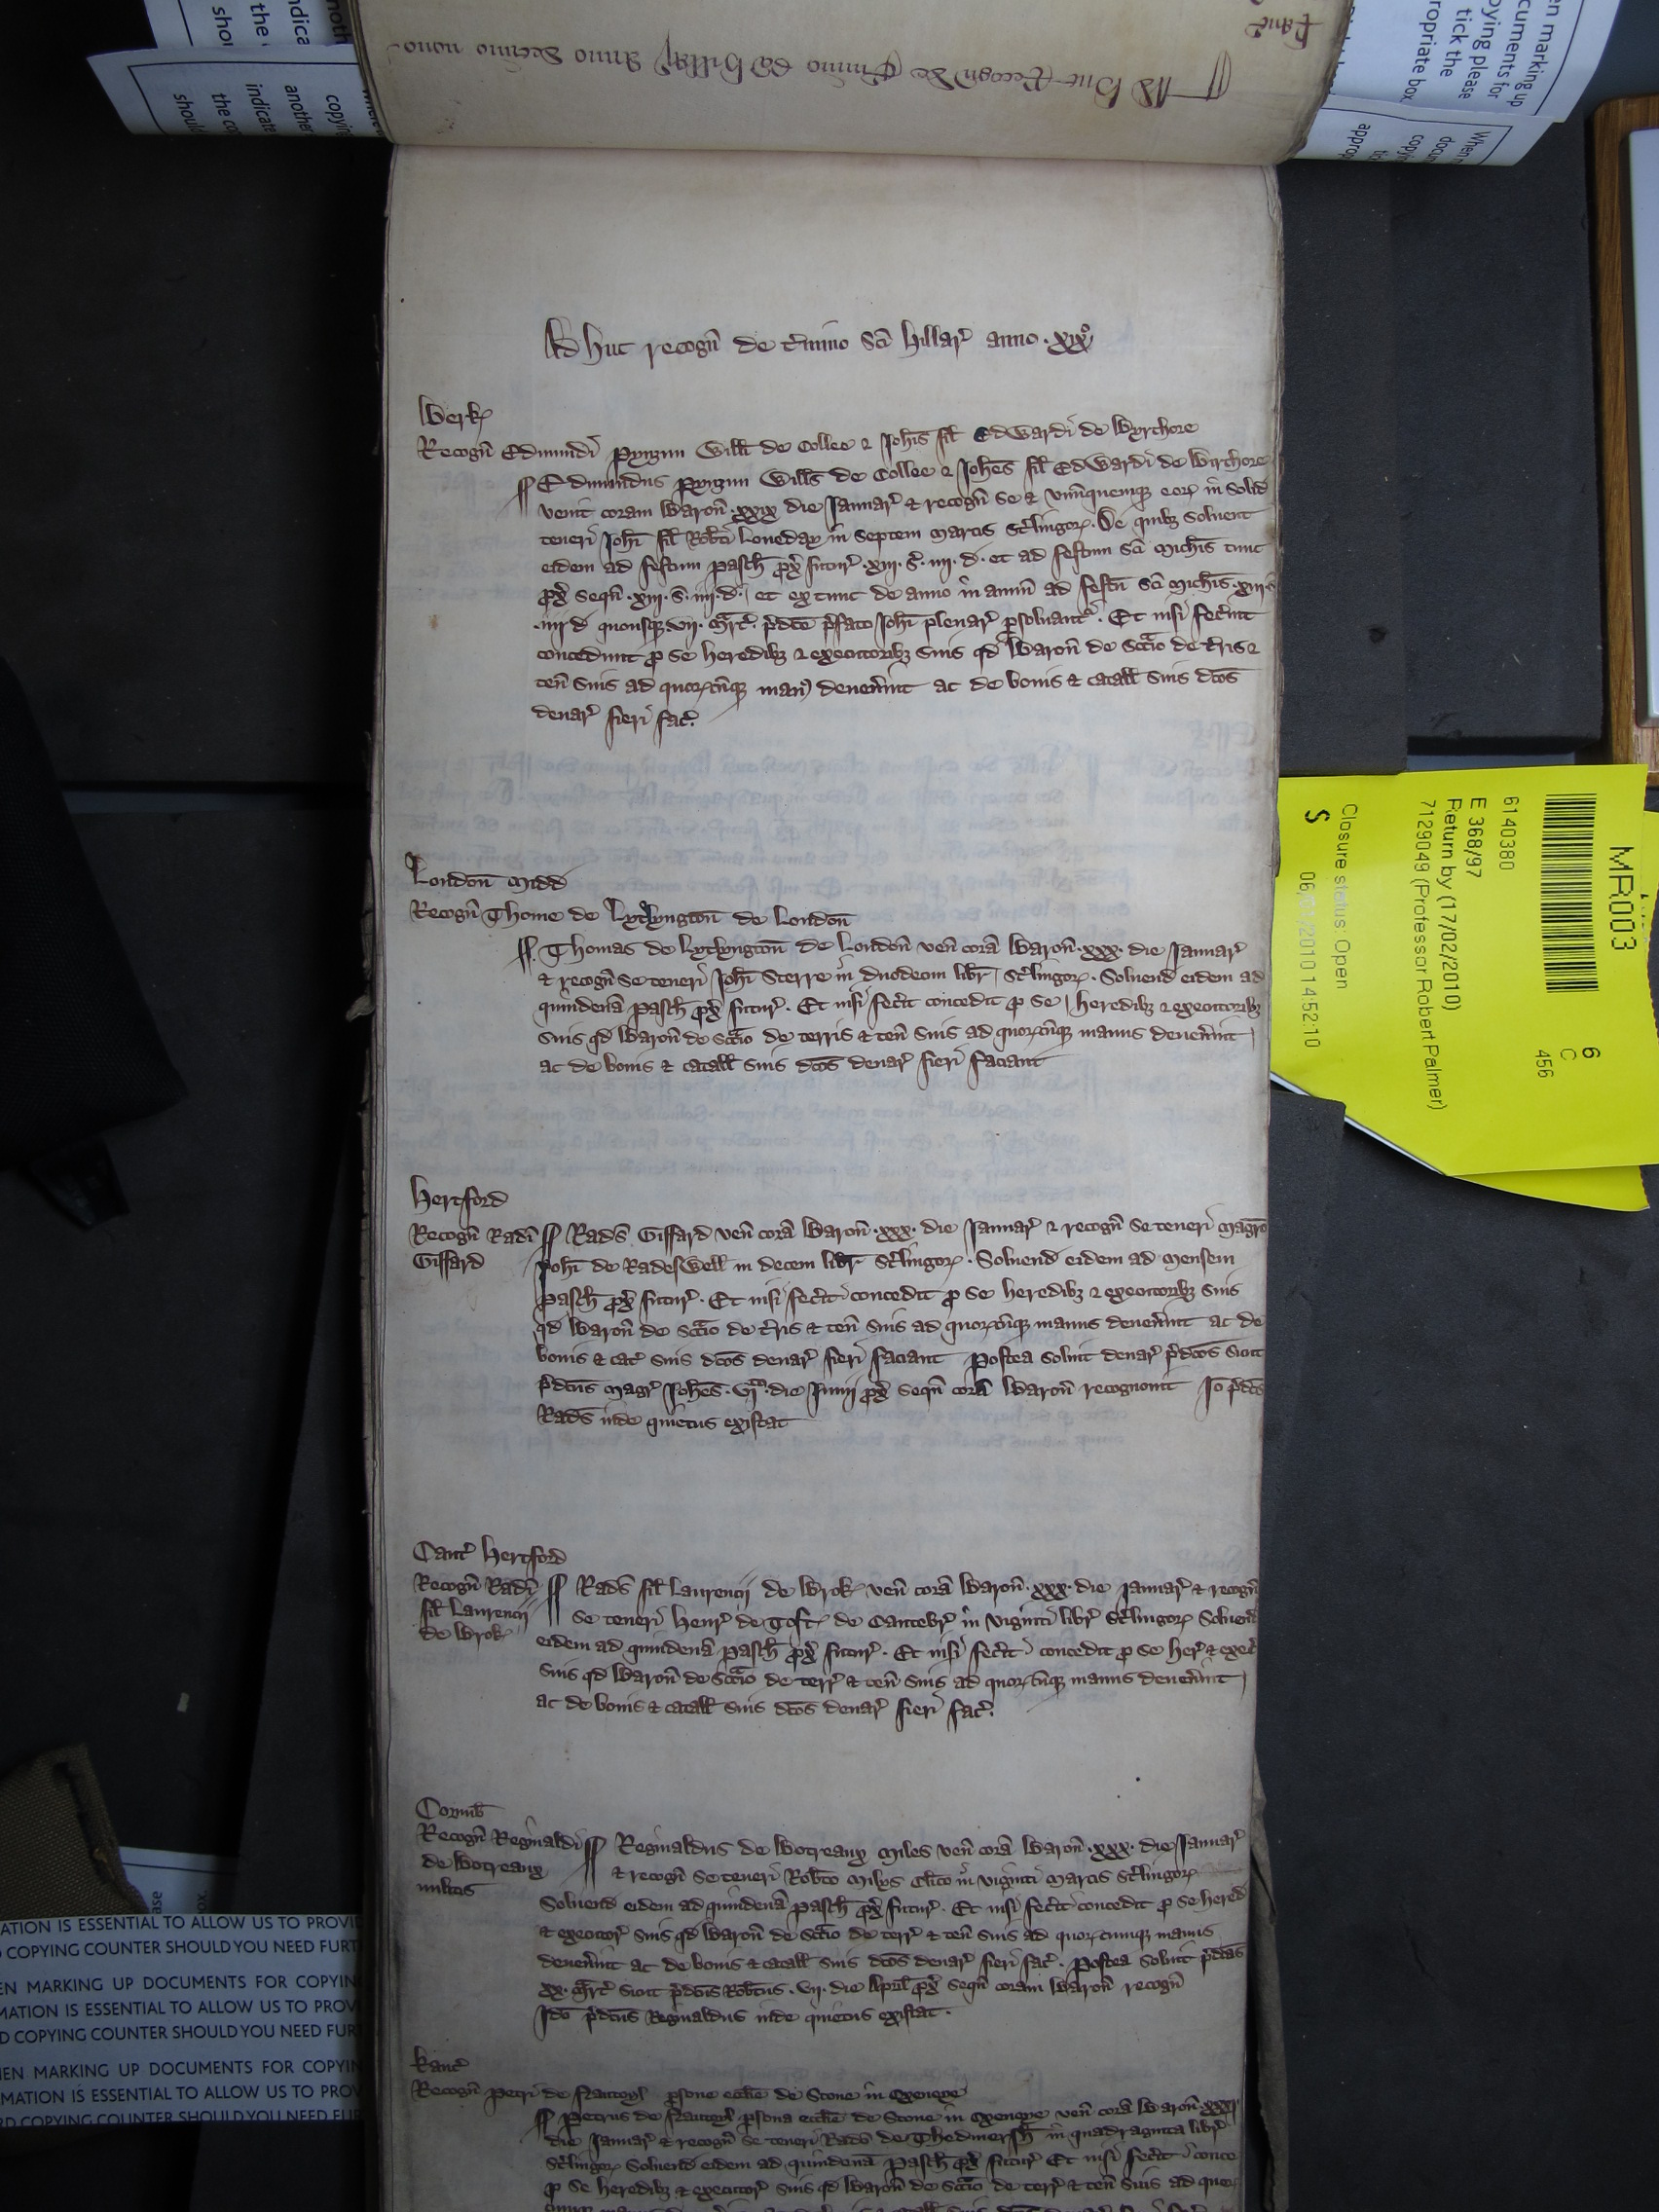 ¶ Ad huc Recogn de Termino Sci Hillar Anno decimo nono
Ad huc recogn de Termino Sci Hillar anno .xix°.
Berk
Recogn Edmundi Pyngun Willi de Collee & Johis fil Edwardi de Byrchore
Edmundus Pyngun Wills de Collee & Johes fil Edwardi de Birchore
venit coram Baron .xxix. die Januar & recogn se & unumquemque eor in solid
teneri Johi fil Robti Loveday in septem marcis sterlingor. De quibz solvent
eidem ad festum Pasch px futur .xiii. s. iiii. d. et ad festum Sci Michis tunc
px sequn .xiii. s. iiii. d. et ex tunc de anno in annu ad festu Sci Michis .xiii. s
.iiii d quousque .vii. marc pdcte pfato Johi plenar psolvant. Et nisi fecint
concedunt p se heredibz & executoribz suis qd Baron de scacio de tris &
ten suis ad quorcumque man devenint ac de bonis & catall suis dcos
denar fieri fac.
London Midd
Recogn Thome de Lytlyngton de London
Thomas de Lytlyngton de London ven cora Baron .xxx. die Januar
& recogn se teneri Johi Sterre in duodecim libr sterlingor. Solvend eidem ad
quindena Pasch px futur. Et nisi fecit concedit p se heredibz & executoribz
suis qd Baron de scacio de terris & ten suis ad quorcumque manus devenint
ac de bonis & catall suis dcos denar fieri faciant
Hertford
Recogn Radi
Giffard
Rads Giffard ven cora Baron .xxx. die Januar & recogn se teneri Magro
Johi de Radeswell in decem libr sterlingor. Solvend eidem ad mensem
Pasch px futur. Et nisi fecit concedit p se heredibz & executoribz suis
qd Baron de scacio de tris & ten suis ad quorcumque manus devenint ac de
bonis & cat suis dcos denar fieri faciant Postea solvit denar pdcos sicut
pdcus Magr Johes .vi. die Junii px sequn cora Baron recognovit Io pdcs
Rads inde quietus existat
Cant Hertford
Recogn Radi
fil Laurencii
de Brok
Rads fil Laurencii de Brok ven cora Baron .xxx. die Januar & recogn
se teneri Henr de Toft de Cantebr in viginti libr sterlingor Solvend
eidem ad quindena Pasch px futur. Et nisi fecit concedit p se her & exec
suis qd Baron de scacio de terr & ten suis ad quorcumque manus devenint
ac de bonis & catall suis dcos denar fieri fac.
Cornub
Recogn Reginaldi
de Botreaux
militis
Reginaldus de Botreaux miles ven cora Baron .xxx. die Januar
& recogn se teneri Robto Milys Clico in viginti marcis sterlingor
Solvend eidem ad quindena Pasch px futur. Et nisi fecit concedit p se hered
& executor suis qd Baron de scacio de terr & ten suis ad quorcumque manus
devenint ac de bonis & catall suis dcos denar fieri fac. Postea solvit pdcas
xx. marc sicut pdcus Robtus .vii. die April px sequn coram Baron recogn
Ido pdcus Reginaldus inde quietus existat.
Kanc
Recogn Petri de psone ecclie de Stone in Oxeneye
Petrus de psona ecclie de Stone in Oxeneye ven cora Baron .xxxi.
die Januar & recogn se teneri Rado de Thedmersh in quadraginta libr
sterlingor Solvend eidem ad quindena Pasch px futur Et nisi fecit conce
p se heredibz & executor suis qd Baron de scacio de terr & ten suis ad quor
MR003
6
C
456
6140380
E 368/97
Return by (17/02/2010)
7129049 (Professor Robert Palmer)
Closure status: Open
S 06/01/2010 14:52:10
en marking up
cuments for
pying please
tick the
ropriate box
MATION IS ESSENTIAL TO ALLOW US TO PROVI
D COPYING COUNTER SHOULD YOU NEED FURT
EN MARKING UP DOCUMENTS FOR COPYIN
MATION IS ESSENTIAL TO ALLOW US TO PROV
D COPYING COUNTER SHOULD YOU NEED FUR
HEN MARKING UP DOCUMENTS FOR COPYIN
MATION IS ESSENTIAL TO ALLOW US TO PROV
RD COPYING COUNTER SHOULD YOU NEED FUR